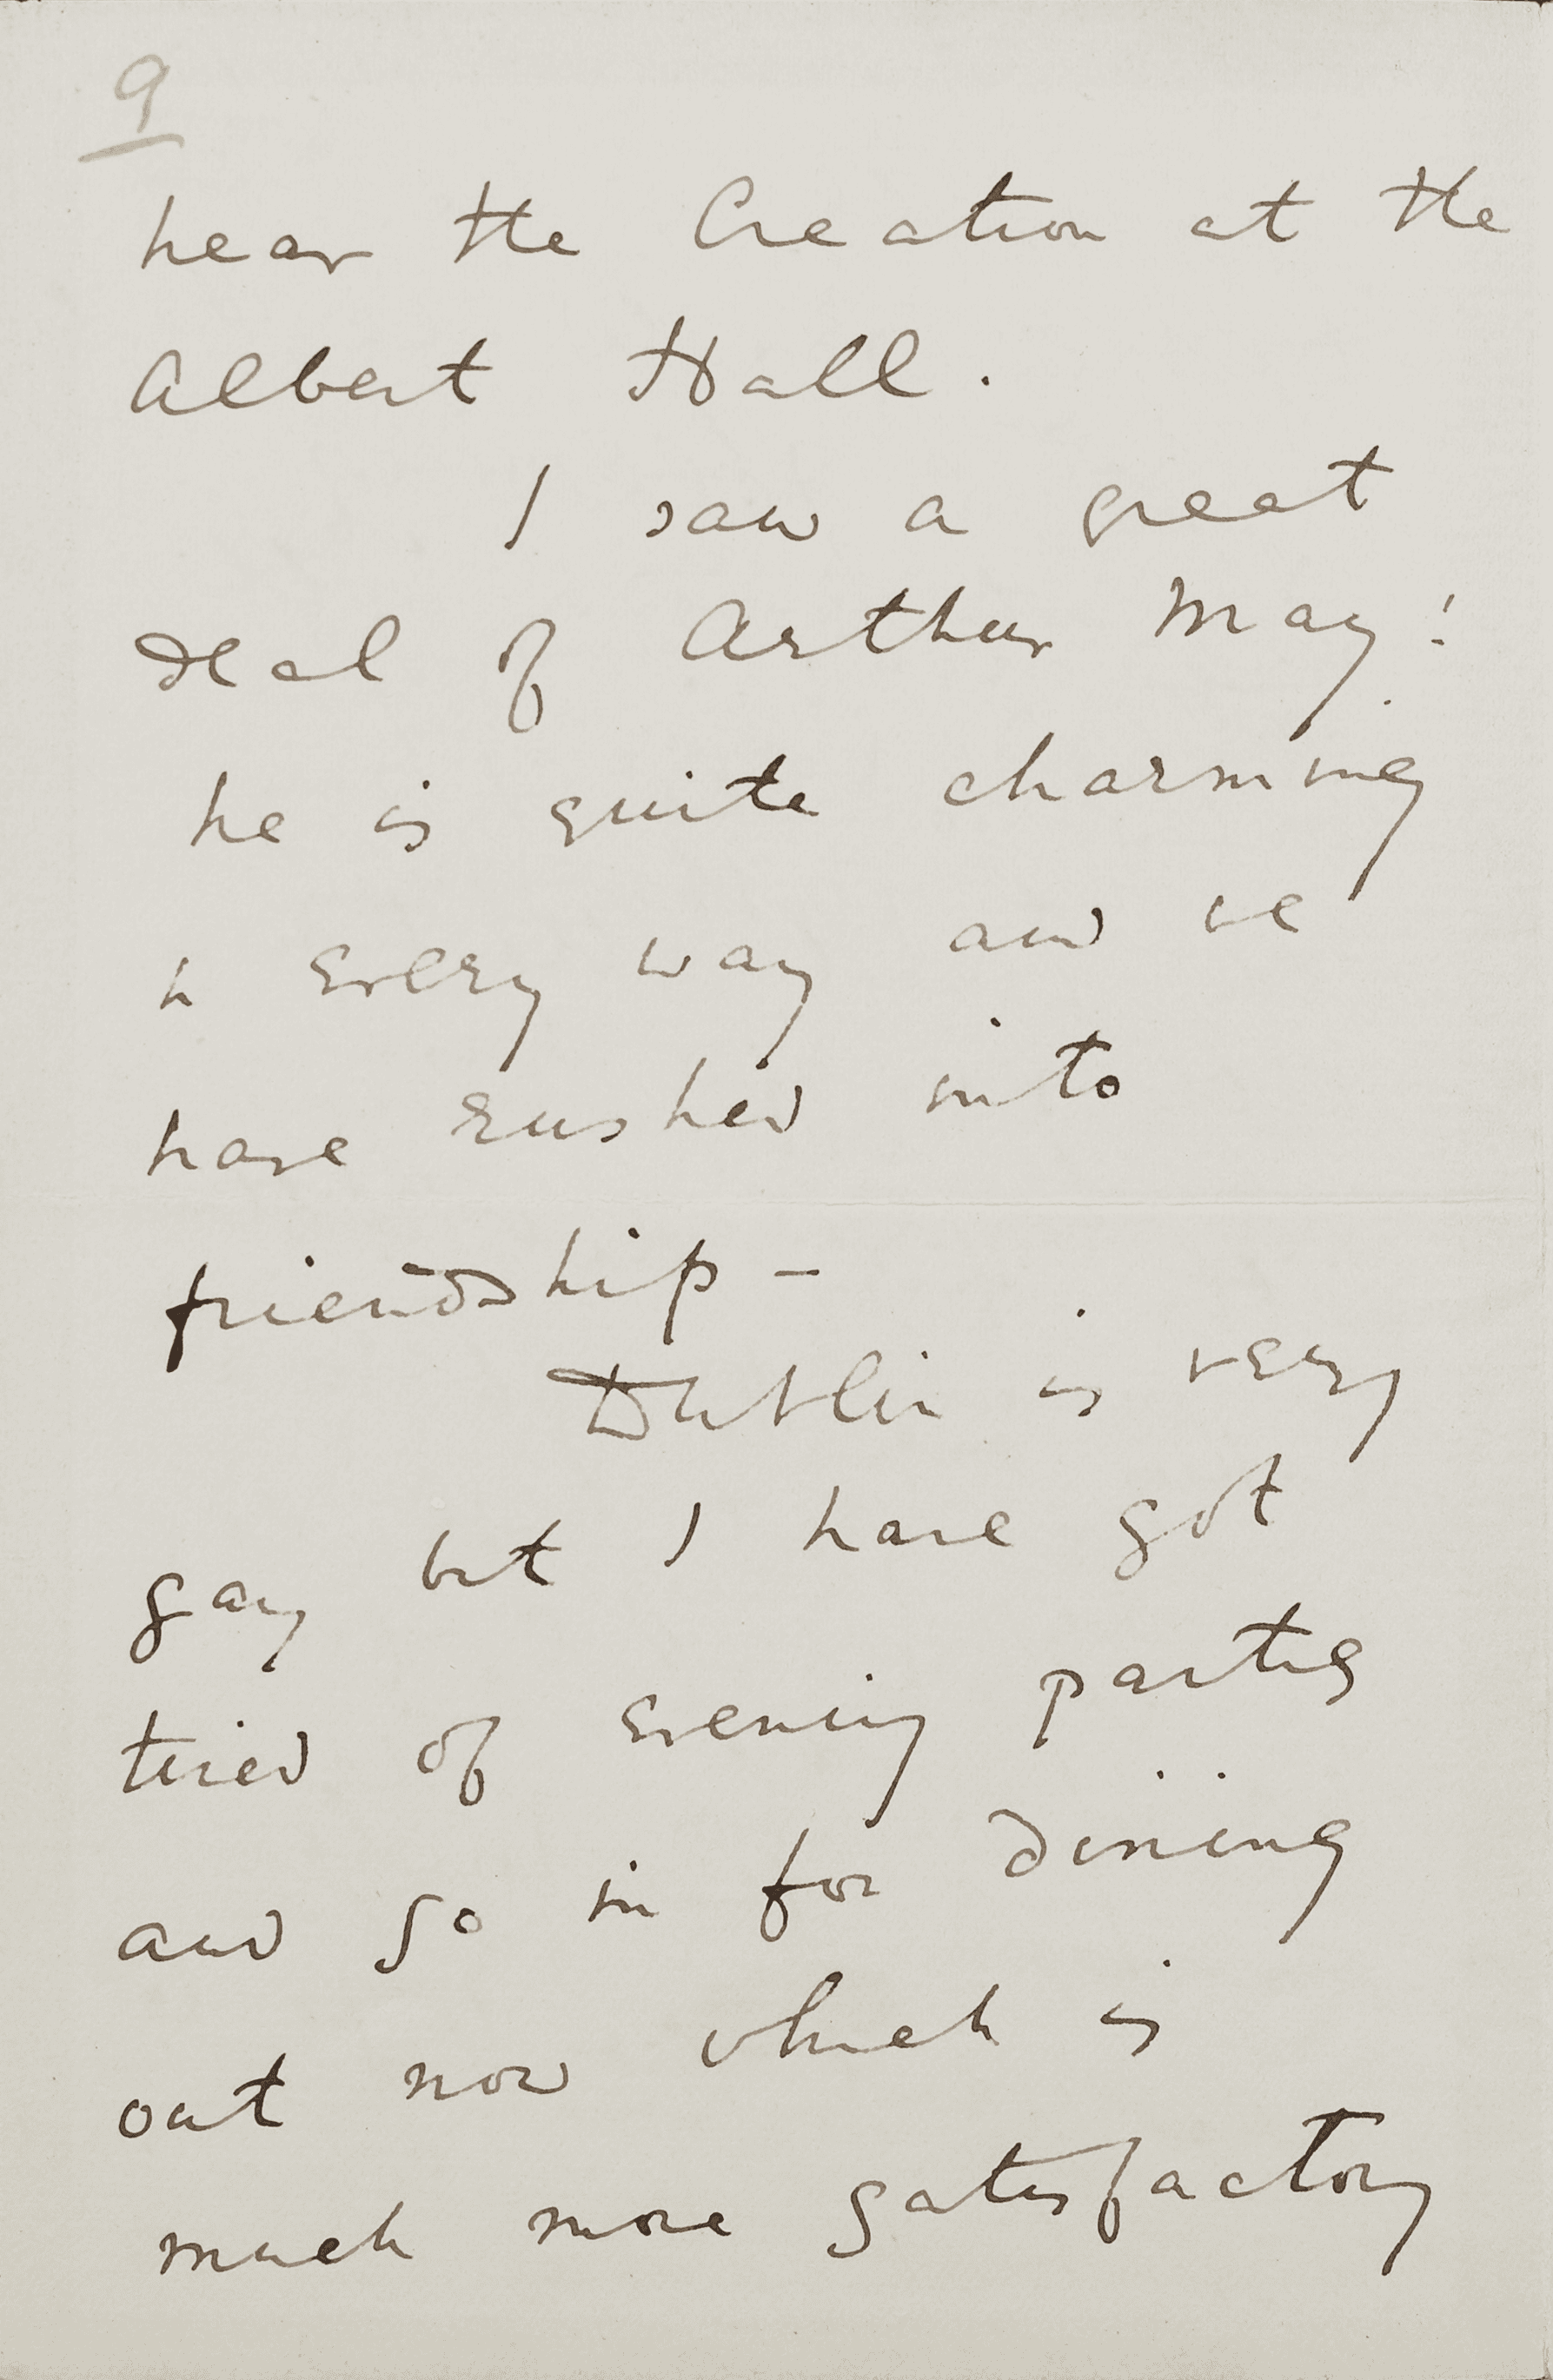 9
hear the Creation at the
Albert Hall.
I saw a great
deal of Arthur May:
he is quite charming
in every way and we
have rushed into
friendship –
Dublin is very
gay but I have got
tired of evening parties
and go in for dining
out now which is
much more satisfactory